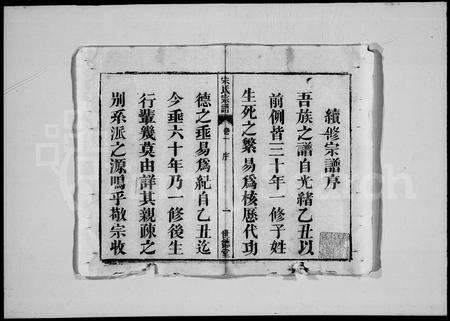 續修宗譜序
吾族之譜自光緒乙丑以
前例皆三十年一修子姓
生死之繁易爲核歷代功
宋氏宗譜
卷一 序
一
世德堂
德之垂易爲紀自乙丑迄
今垂六十年乃一修後生
行輩幾莫由詳其親疎之
別系派之源嗚乎敬宗收